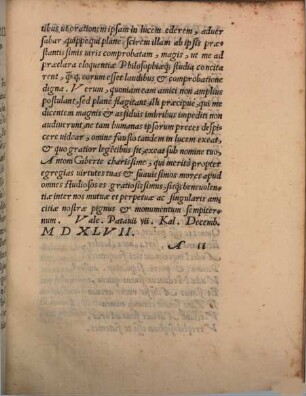 tibus ut orationem ipsam in lucem ederem, aduer
sabar, quippe qui plane scirem illam ab ipsis præ
stantissimis uiris comprobatam, magis, ut me ad
præclara eloquentiæ Philosophiæq́; studia concita
rent, q̃q̃ eorum esset laudibus & comprobatione
digna. Verum, quoniam eam amici non amplius
postulant, sed plane flagitant illi præcipue, qui me
dicentem magnis & assiduis imbribus impediti non
audiuerunt, ne tam humanas ipsorum preces despi
cere uidear, omine fausto tandem in lucem exeat,
& quo gratior legētibus sit, exeat sub nomine tuo,
A mom Giberte charissime, qui merito propter
egregias uirtutes tuas & suauissimos mores apud
omnes studiosos es gratiosissimus, sitq́; beneuolen
tiæ inter nos mutuæ et perpetuæ ac singularis ami
citiæ nostræ pignus & monumentum sempiter
num. Vale. Patauii yii. Kal. Decemb.
M D XLVII.
A ii